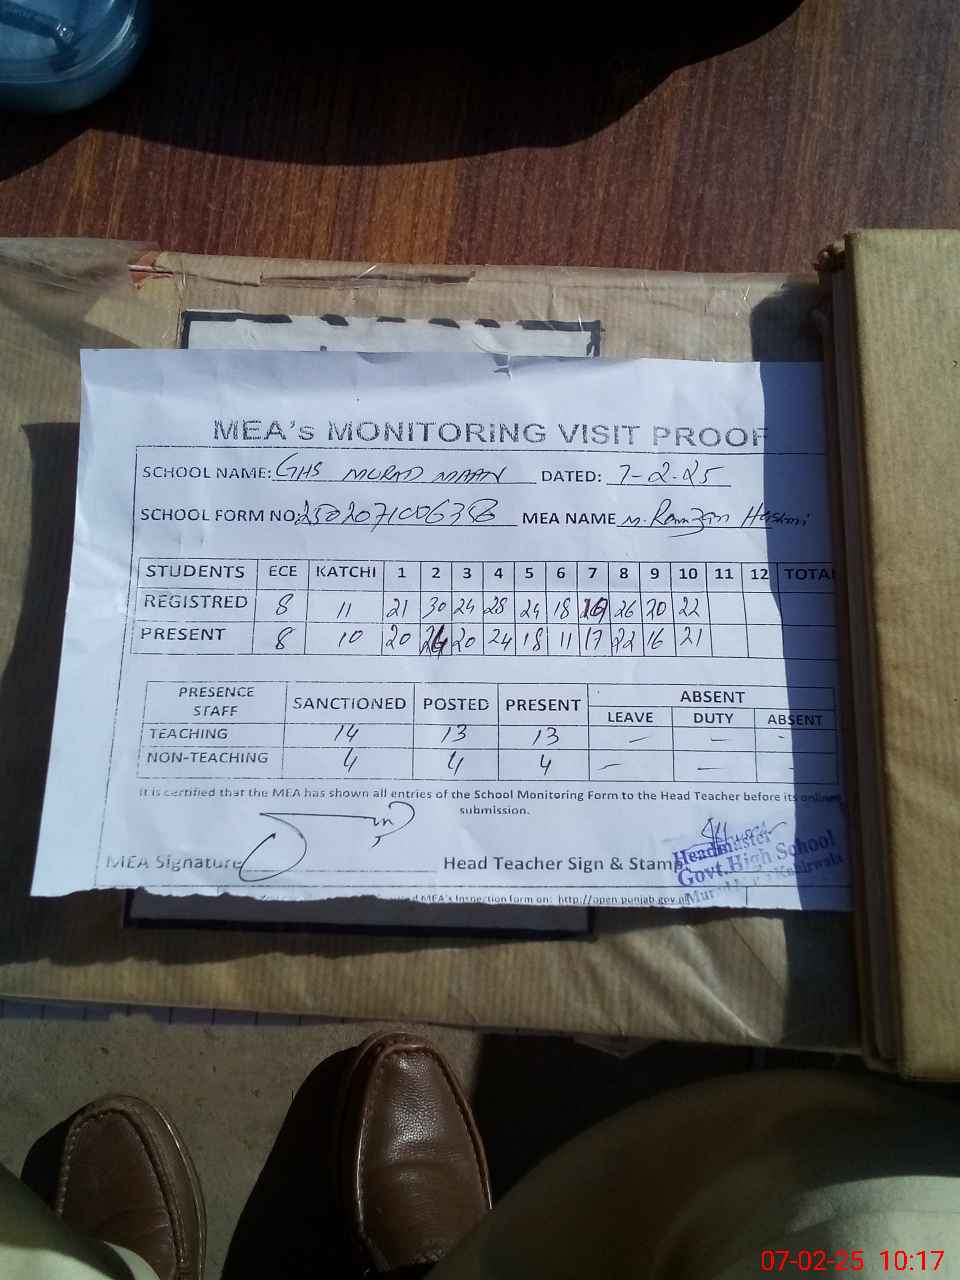 MEA's MONITORING VISIT PROOF
SCHOOL NAME: GHS MURAD MAAN DATED: 7-2-25
SCHOOL FORM NO: MEA NAME M. Ramzan Hashmi
STUDENTS ECE KATCHI 1 2 3 4 5 6 7 8 9 10 11 12 TOTAL
REGISTRED 8 11 21 30 24 28 24 18 26 20 22
PRESENT 8 10 20 20 24 18 11 17 22 16 21
PRESENCE STAFF SANCTIONED POSTED PRESENT ABSENT
LEAVE DUTY ABSENT
TEACHING 14 13 13 – – -
NON-TEACHING 4 4 4 – – -
It is certified that the MEA has shown all entries of the School Monitoring Form to the Head Teacher before its online
submission.
MEA Signature Head Teacher Sign & Stamp
Headmaster
Govt. High School
Kabirwala
MEA's Inspection form on: http://open.punjab.gov.pk
07-02-25 10:17